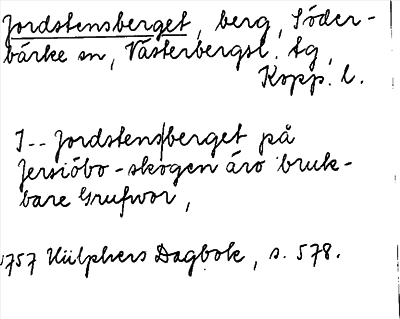 Jordstensberget, berg, Söder-
bärke sn, Västerbergsl. tg,
Kopp. l.
I-- Jordstensberget på
Jersiöbo-skogen äro bruk-
bare Grufwor,
1757 Hülphers Dagbok, s. 578.